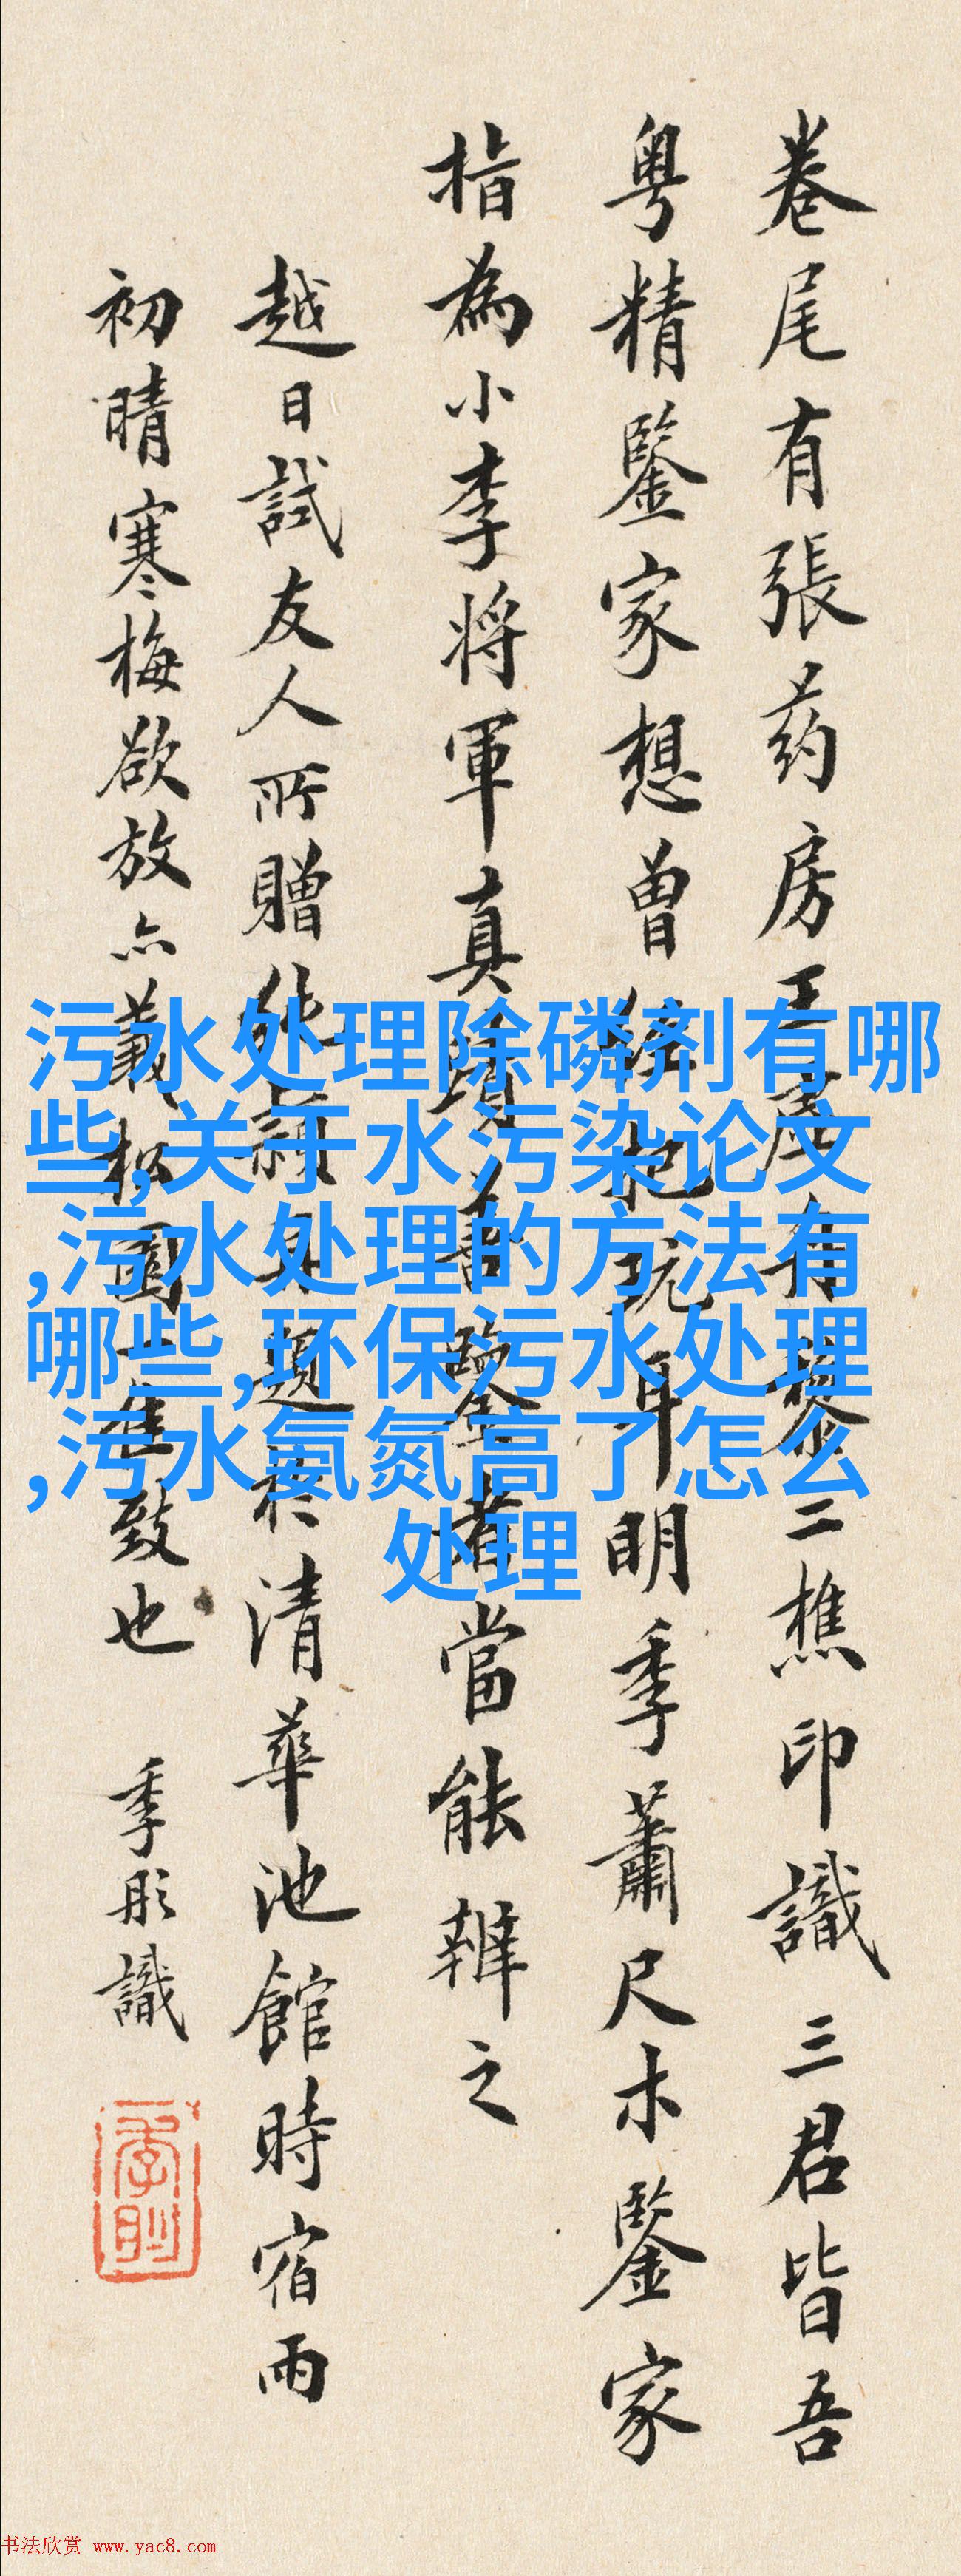 卷尾有張药房王房有黎二樵印識三君皆吾
粤精鑒家想曾經抱玩耳明季蕭尺木鑒家
指為小李将軍真蹟善鑒者當能辨之
越日試友人所贈佳穎又題於清華池館時宿雨
初晴寒梅欲放亦羲松園一佳致也 季彤識
污水处理除磷剂有哪
些,关于水污染论文
,污水处理的方法有
哪些,环保污水处理
,污水氨氮高了怎么
处理
书法欣赏 www.yac8.com